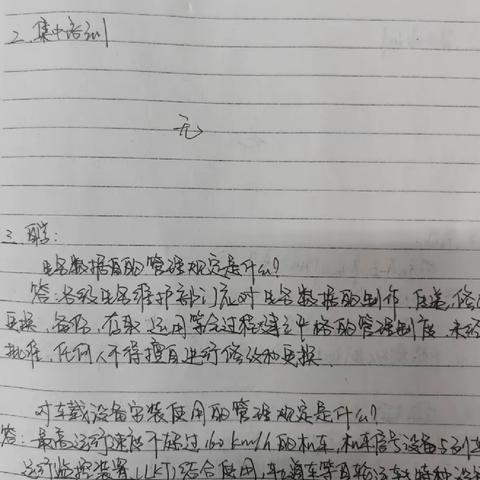 2. 集中培训
无
三. 自学:
电务数据的管理规定是什么?
答:各级电务维护部门应对电务数据的制作、修
更换、备份、存取、运用等全过程建立严格的管理制度,未经
批准,任何人不得擅自进行修改和更换.
对车载设备安装使用的管理规定是什么?
答:最高运行速度不超过160km/h的机车,机车信号设备与列车
运行监控装置(LKJ)结合使用,轨道车等自轮运转特种设